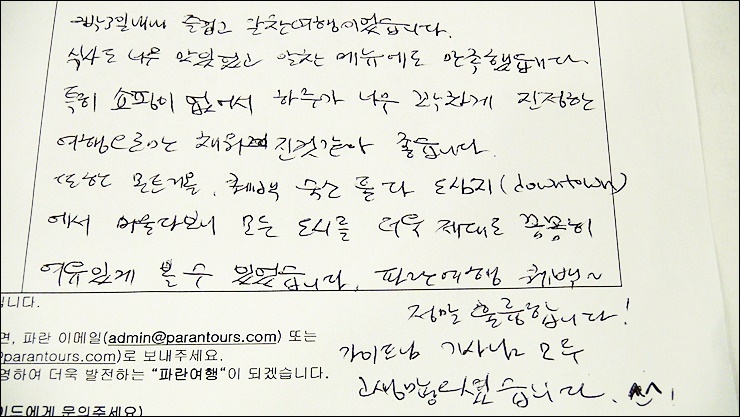 퀘백3일내내 즐겁고 알찬여행이었습니다.
식사도 너무 맛있었고 알찬 메뉴에도 만족했습니다.
특히 쇼핑이 없어서 하루가 너무 꽉차게 진정한
여행으로만 채워진것같아 좋습니다.
또한 몬트리올, 퀘백 숙소 둘다 도심지(downtown)
에서 머물다보니 모든 도시를 더욱 제대로 꼼꼼히
여유있게 볼 수 있었습니다. 파란여행 퀘백~
정말 훌륭합니다!
가이드님 기사님 모두
고생많으셨습니다. ^^
입니다.
면, 파란 이메일(admin@parantours.com) 또는
@parantours.com)로 보내주세요.
영하여 더욱 발전하는 "파란여행"이 되겠습니다.
이드에게 문의주세요)